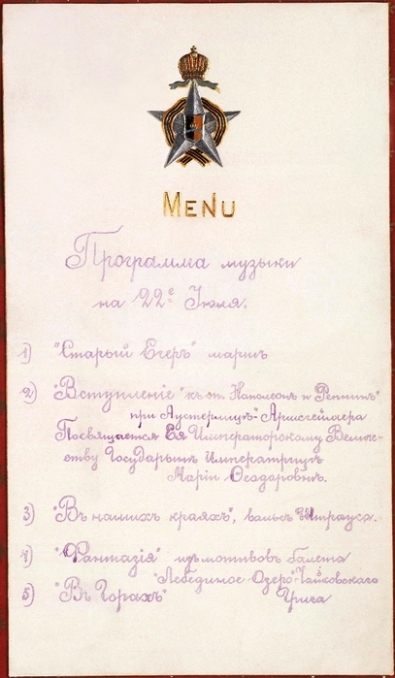 MENU
Программа музыки
на 22е Июля.
1) "Старый Егерь" маршъ
2) "Вступленіе" къ от. Наполеон и Репнинъ
при Аустерлицѣ-
Посвящается Ея Императорскому Величе-
ству Государынѣ Императрицѣ
Маріи Ѳеодоровнѣ.
3) "Въ нашихъ краяхъ", вальсъ Штрауса.
4) "Фантазія" изъ мотивовъ балета
"Лебединое Озеро" Чайковскаго
5) "Въ Горахъ" Грига